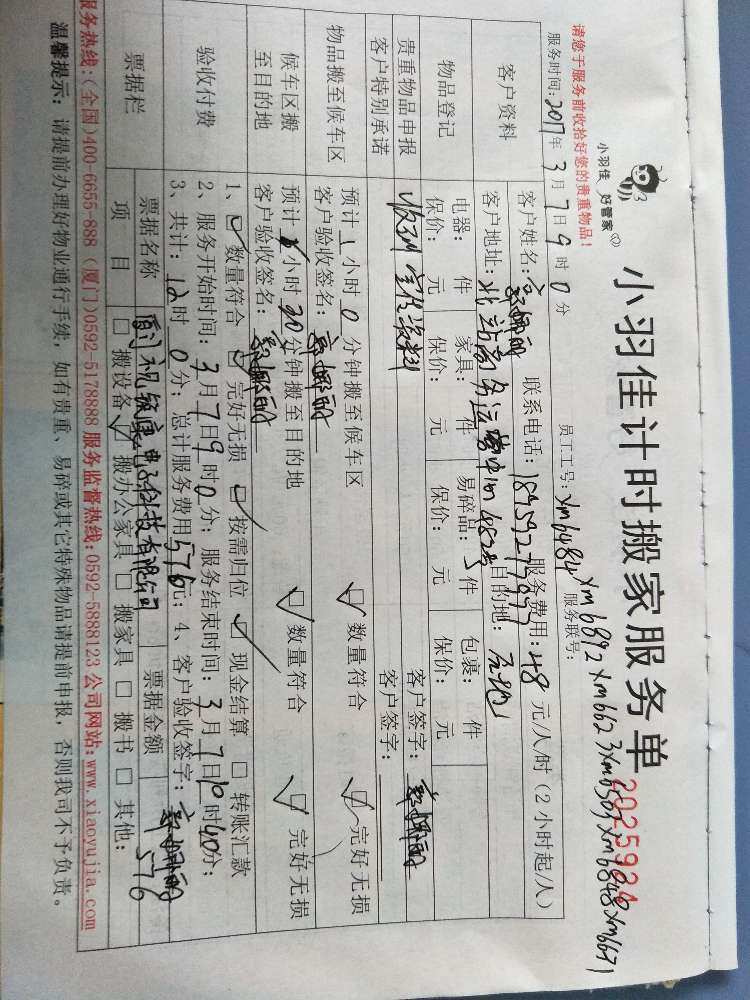 小羽佳 好管家
小羽佳计时搬家服务单
2025924
请您于服务前收拾好您的贵重物品!
员工工号: xm6484 xm6892 xm6623 xm6503 xm6848 xm6671
服务时间: 2017年 3月 7日 9时 0分
服务联号:
客户资料
客户姓名:
联系电话:
服务费用: 48 元/人/时 (2小时起/人)
客户地址: 北站商务运营中心
目的地:
物品登记
电器: 件 家具: 件 易碎品: 5件 包裹: 件
保价: 元 保价: 元 保价: 元 保价: 元
贵重物品申报
客户签字:
客户特别承诺
客户签字:
物品搬至候车区
预计 1 小时 0 分钟搬至候车区
数量符合 完好无损
客户验收签名:
候车区搬至目的地
预计 小时 30 分钟搬至目的地
数量符合 完好无损
客户验收签名:
验收付费
1、 数量符合 完好无损 按需归位 现金结算 转账汇款
2、服务开始时间: 3月 7日 9时 0分; 服务结束时间: 3月 7日 10时 40分;
3、共计: 12时 0分; 总计服务费用 576元; 4、客户验收签字:
票据栏
票据名称
票据金额 576
项目
搬设备 搬办公家具 搬家具 搬书 其他:
服务热线:(全国)400-6655-888 (厦门)0592-5178888 服务监督热线:0592-5888123 公司网站:www.xiaoyujia.com
温馨提示: 请提前办理好物业通行手续, 如有贵重、易碎或其它特殊物品请提前申报, 否则我司不予负责。